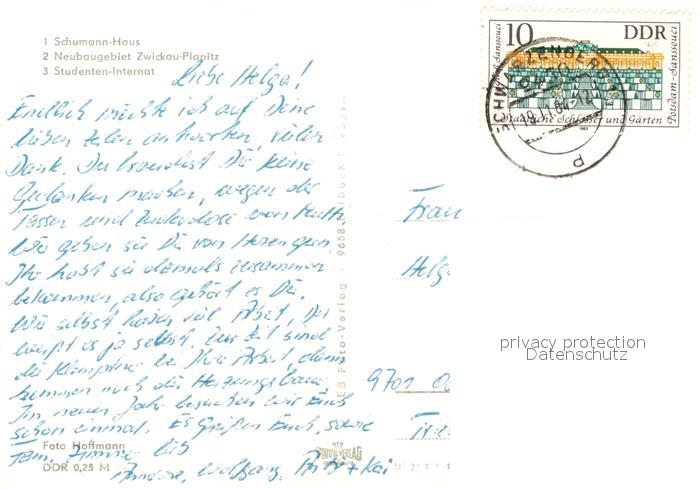 1 Schumann-Haus
2 Neubaugebiet Zwickau-Planitz
3 Studenten-Internat
Liebe Helga!
Endlich möchte ich auf Deine
lieben Zeilen antworten, vielen
Dank. Du brauchst Dir keine
Gedanken machen, wegen der
Tassen und Zuckerdose von Mutti.
Wir geben sie Dir von Herzen gern.
Ihr habt sie damals zusammen
bekommen, also gehört es Dir.
Wir selbst haben viel Arbeit, Du
weißt es ja selbst, zur Zeit sind
die Klempner bei ihrer Arbeit, dann
kommen noch die Heizungsbauer.
Im neuen Jahr besuchen wir Euch
schon einmal. Es Grüßen Euch, sowie
Fam. Zimmer
Wolfgang, + Kai
Foto Hoffmann
DDR 0,25 M
Foto-Verlag
10 DDR
Potsdam-Sanssouci
Staatliche Schlösser und Gärten
1983
SCHWARZENBERG
Frau
Helga
9701
privacy protection
Datenschutz